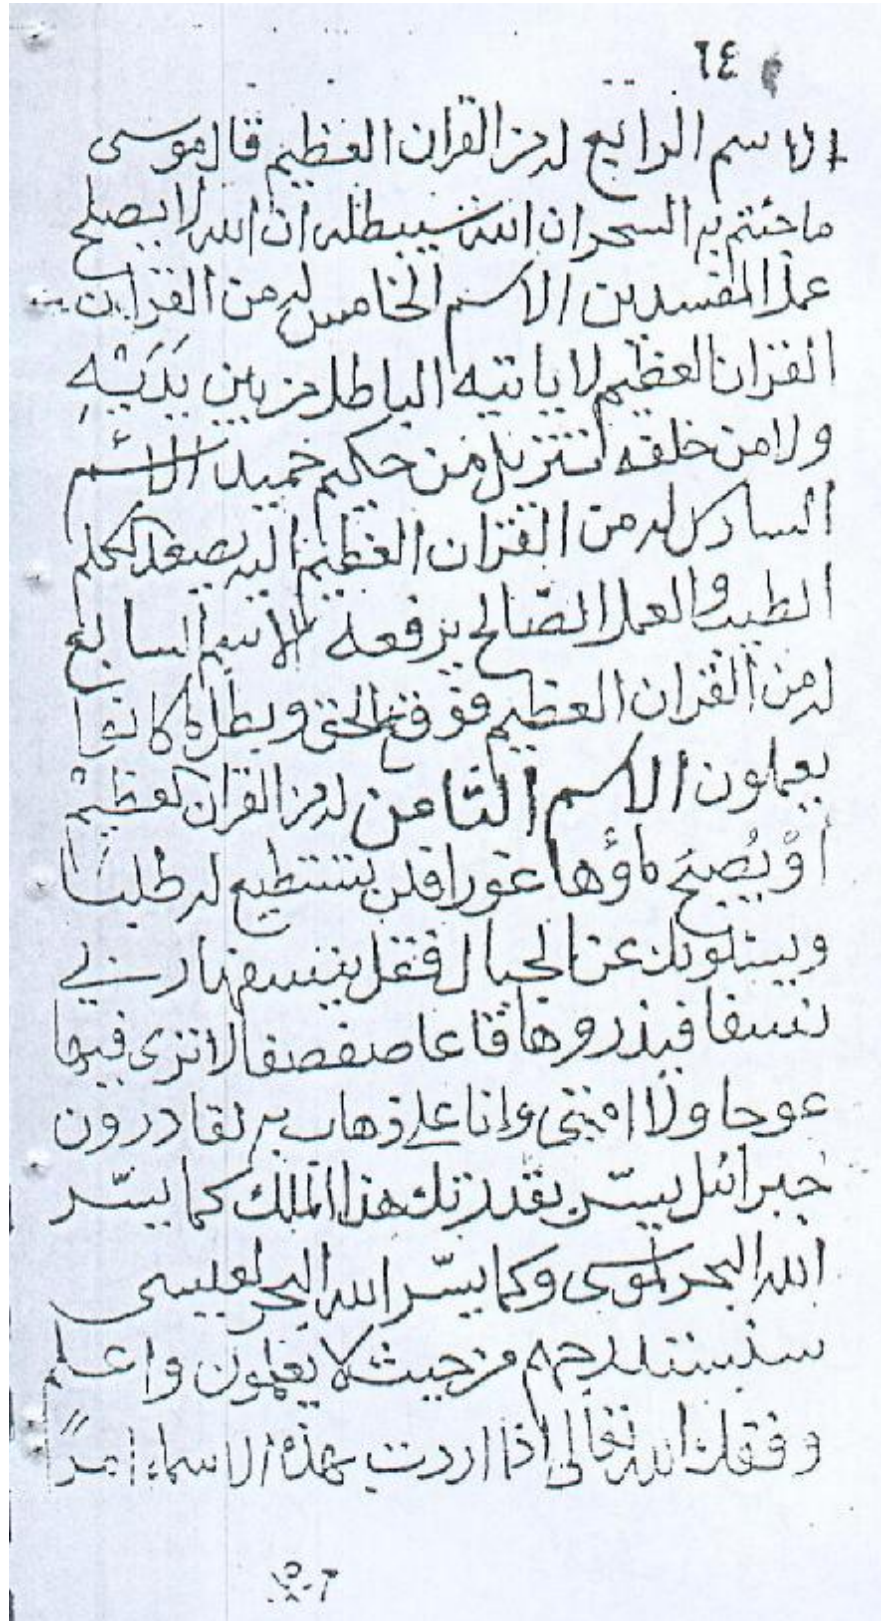 ٦٤
الاسم الرابع له من القران العظيم قال موسى
ما جئتم به السحر ان الله سيبطله ان الله لا يصلح
عمل المفسدين الاسم الخامس له من القران
القران العظيم لا ياتيه الباطل من بين يَدَيْهِ
ولا من خلفه تنزيل من حكيم حميد الاسم
السادس له من القران العظيم اليه يصعد الكلم
الطيب والعمل الصّالح يرفعه الاسم السابع
له من القران العظيم فوقع الحق وبطل ما كانوا
يعملون الاسم الثامن له من القران العظيم
أوْ يُصبحَ ماؤها غورا فلن تستطيع له طلبًا
ويسئلونك عن الجبال فقل ينسفها ربي
نسفا فيذروها قاعا صفصفا لا ترى فيها
عوجا ولا امتى وانا على ذهاب به لقادرون
جبرائل يسّر بقدرتك هذا الملك كما يسّر
الله البحر لموسى وكما يسّر الله البحر لعيسى
سنستدرجهم من حيث لا يعلمون واعلم
وفقك الله تعالى اذا اردت بهذه الاسماء امرًا